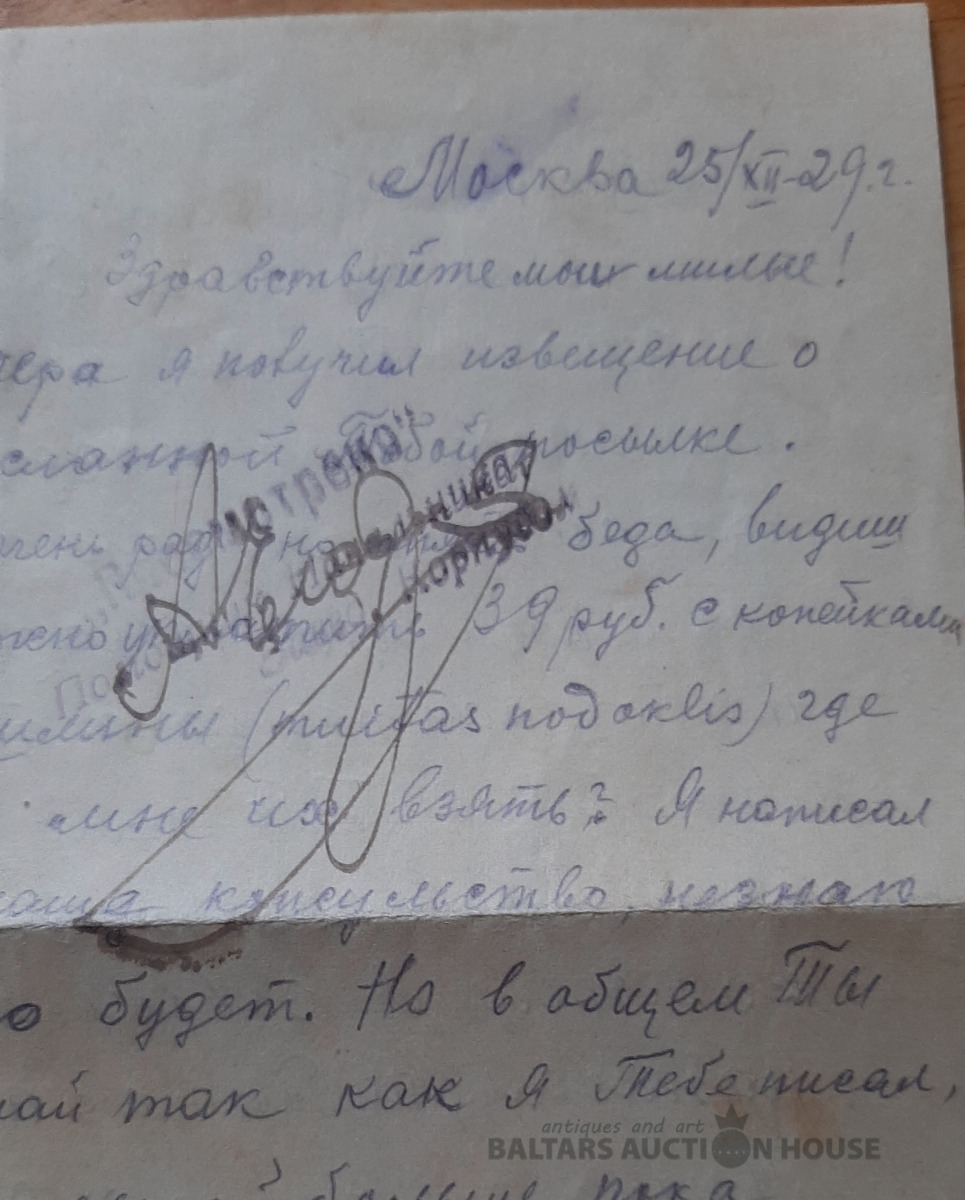 Москва 25/XII-29.г.
Здравствуйте мои милые!
чера я получил извещение о
сланной Тобой посылке.
"Просмотрено"
Помощн. Начальника
Корпуса
чень рад но беда, видиш
жно уплатить 39 руб. с копейками
шлины (muitas nodoklis) где
мне их взять? Я написал
наше консульство, незнаю
о будет. Но в общем Ты
лай так как я Тебе писал,
больше пока
antiques and art
BALTARS AUCTION HOUSE